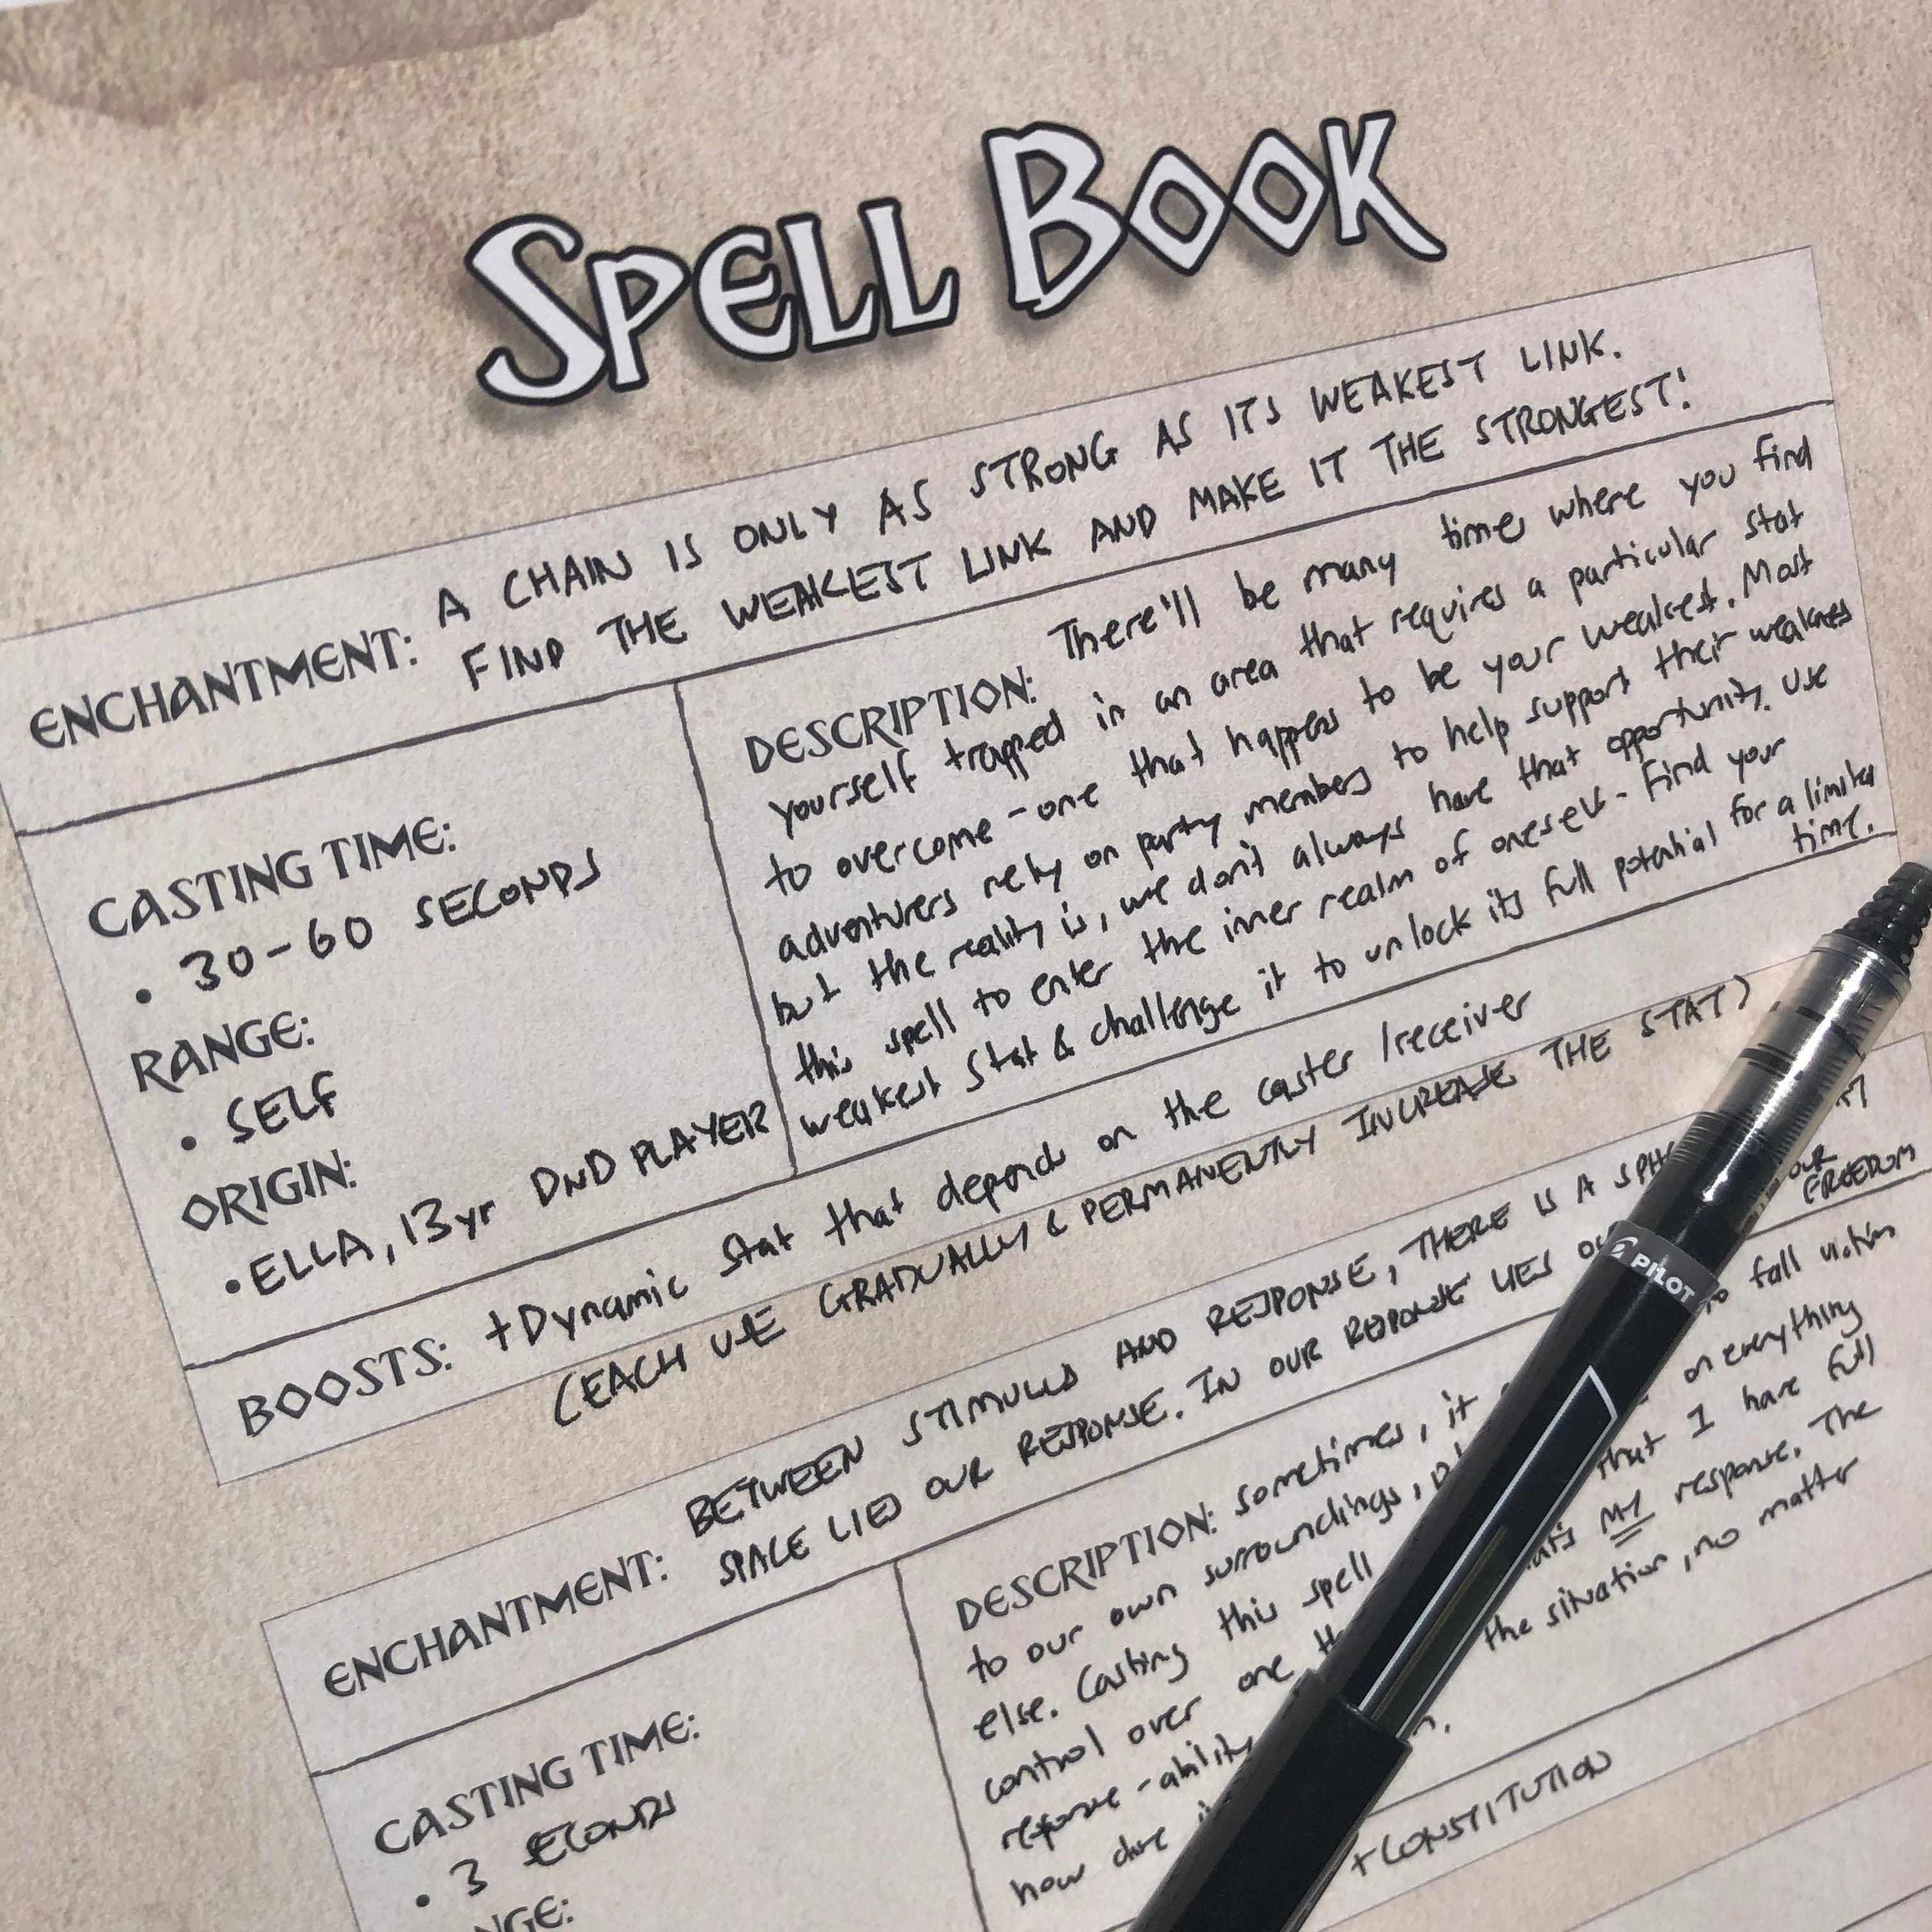 SPELL BOOK
ENCHANTMENT: A CHAIN IS ONLY AS STRONG AS ITS WEAKEST LINK.
FIND THE WEAKEST LINK AND MAKE IT THE STRONGEST!
CASTING TIME:
• 30-60 SECONDS
RANGE:
• SELF
ORIGIN:
• ELLA, 13yr DND PLAYER
DESCRIPTION: There'll be many times where you find
yourself trapped in an area that requires a particular stat
to overcome - one that happens to be your weakest. Most
adventurers rely on party members to help support their weakness
but the reality is, we don't always have that opportunity. Use
this spell to enter the inner realm of oneself - Find your
weakest stat & challenge it to unlock its full potential for a limited
time.
BOOSTS: +Dynamic stat that depends on the caster/receiver
(EACH USE GRADUALLY & PERMANENTLY INCREASES THE STAT)
ENCHANTMENT: BETWEEN STIMULUS AND RESPONSE, THERE IS A
SPACE LIES OUR RESPONSE. IN OUR RESPONSE LIES OUR
FREEDOM
CASTING TIME:
• 3 SECONDS
DESCRIPTION: Sometimes, it to fall victim
to our own surroundings, on everything
else. Casting this spell that I have full
control over one MY response. The
response-ability the situation, no matter
how dire
+CONSTITUTION
PILOT